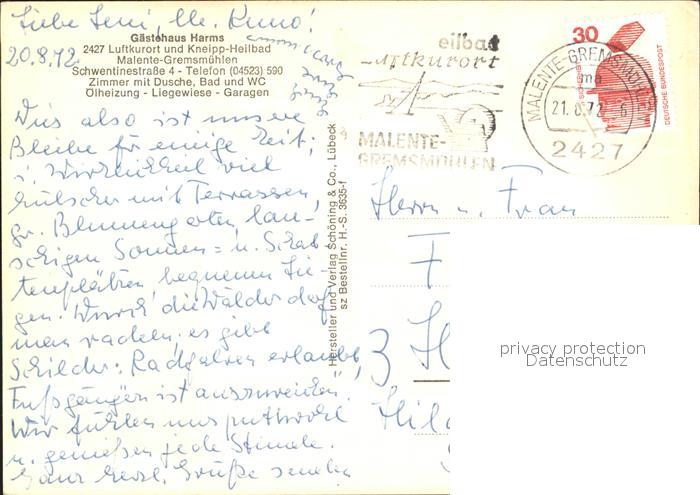 Liebe Leni, lb. Kuno!
20.8.72
Gästehaus Harms
2427 Luftkurort und Kneipp-Heilbad
Malente-Gremsmühlen
Schwentinestraße 4 - Telefon (04523) 590
Zimmer mit Dusche, Bad und WC
Ölheizung - Liegewiese - Garagen
Dies also ist unsere
Bleibe für einige Zeit,
i. Wirklichkeit viel
hübscher mit Terrassen,
gr. Blumengarten, lau-
schigen Sonnen= u. Schat-
tenplätzen bequemen Lie-
gen. Durch die Wälder darf
man radeln, es gibt
Schilder: Radfahren erlaubt,
Fußgängern ist auszuweichen.
Wir fühlen uns
u. genießen jede Stunde.
Ganz herzl. Grüße senden
Hersteller und Verlag Schöning & Co., Lübeck
sz Bestellnr. H.-S. 3635-f
eilbad
Luftkurort
MALENTE-
GREMSMÜHLEN
MALENTE-GREMSMÜHLEN
ma
21.8.72-6
2427
30
DEUTSCHE BUNDESPOST
Herrn u. Frau
F
3 H
Hil
privacy protection
Datenschutz